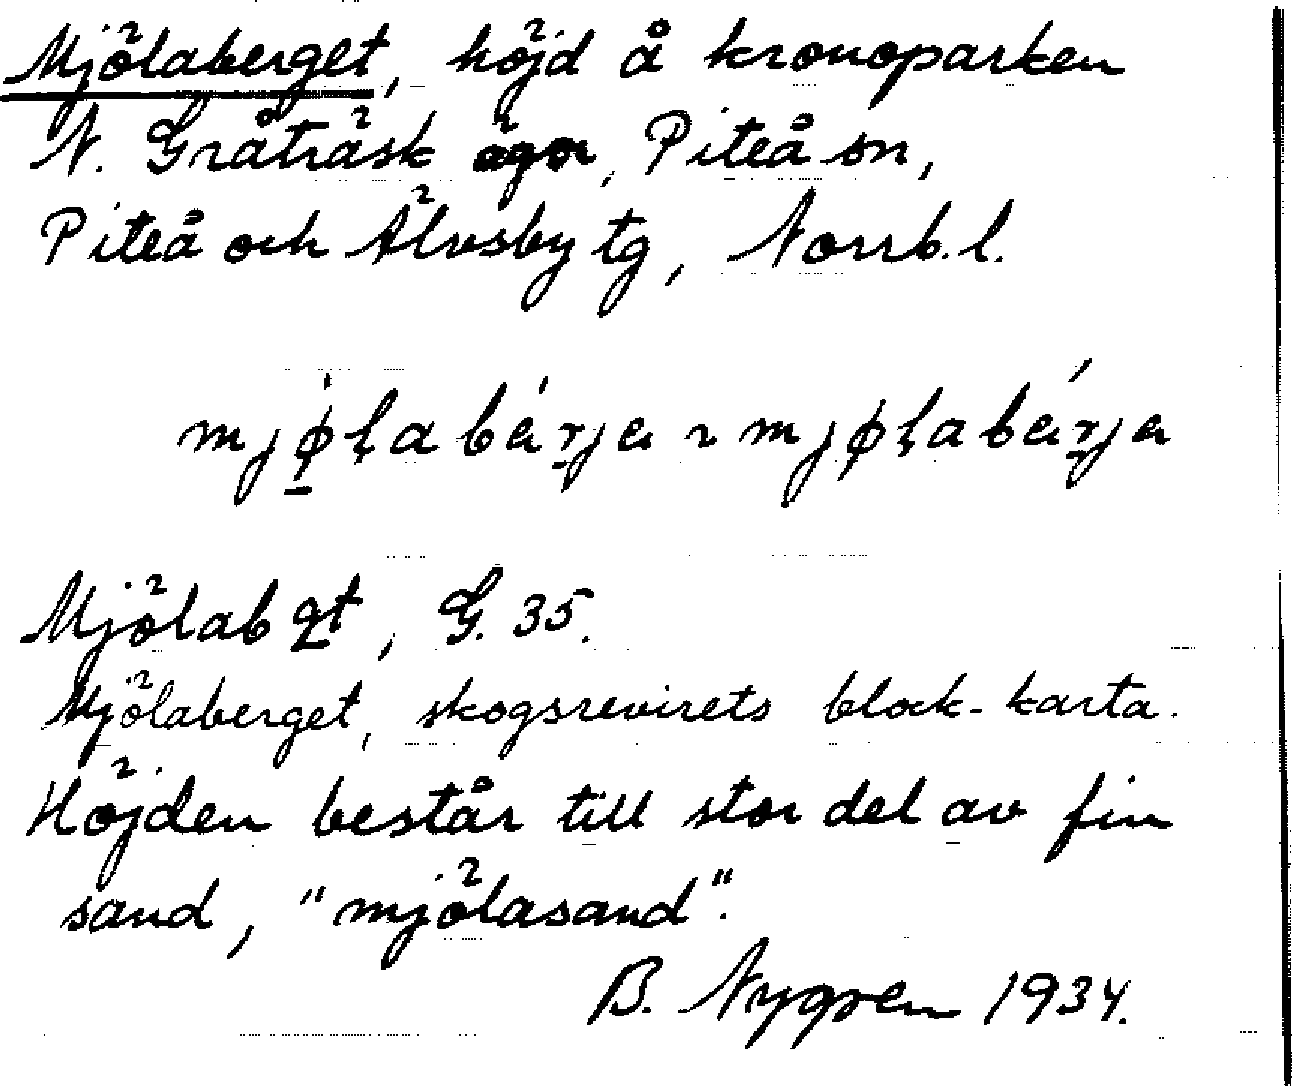 Mjölaberget, höjd å kronoparken
N. Gråträsk ägor, Piteå sn,
Piteå och Älvsby tg, Norrb. l.
mjøɭabærja ~ mjøɭabærja
Mjölabgt, G. 35.
Mjölaberget, skogsrevirets block-karta.
Höjden består till stor del av fin
sand, "mjölasand".
B. Nygren 1934.